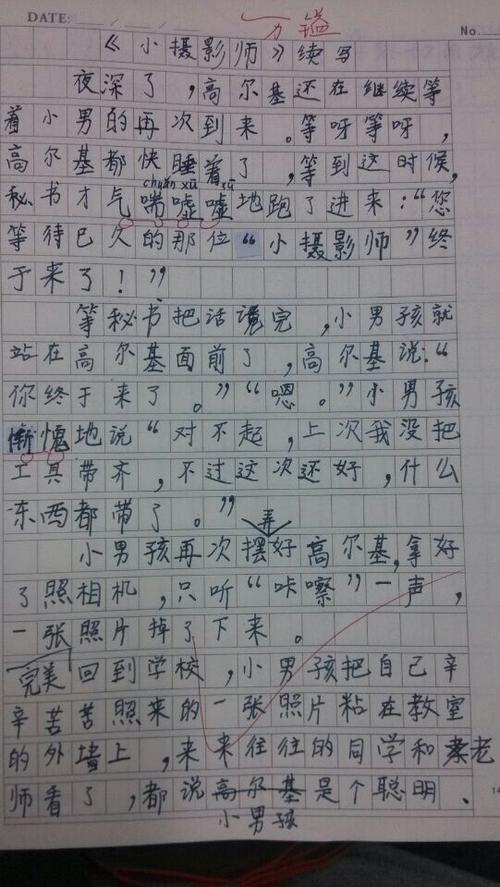 DATE:
No.
《小摄影师》续写
夜深了,高尔基还在继续等
着小男的再次到来。等呀等呀,
高尔基都快睡着了,等到这时候,
chuǎn xū xū
秘书才气喘嘘嘘地跑了进来:“您
等待已久的那位“小摄影师”终
于来了!”
等秘书把话说完,小男孩就
站在高尔基面前了,高尔基说:“
你终于来了。”“嗯。”小男孩
惭愧地说“对不起,上次我没把
工具带齐,不过这次还好,什么
东西都带了。”
弄
小男孩再次摆好高尔基,拿好
了照相机,只听“咔嚓”一声,
一张照片掉了下来。
完美
回到学校,小男孩把自己辛
辛苦苦照来的一张照片粘在教室
的外墙上,来来往往的同学和老
师看了,都说高尔基是个聪明、
小男孩
14